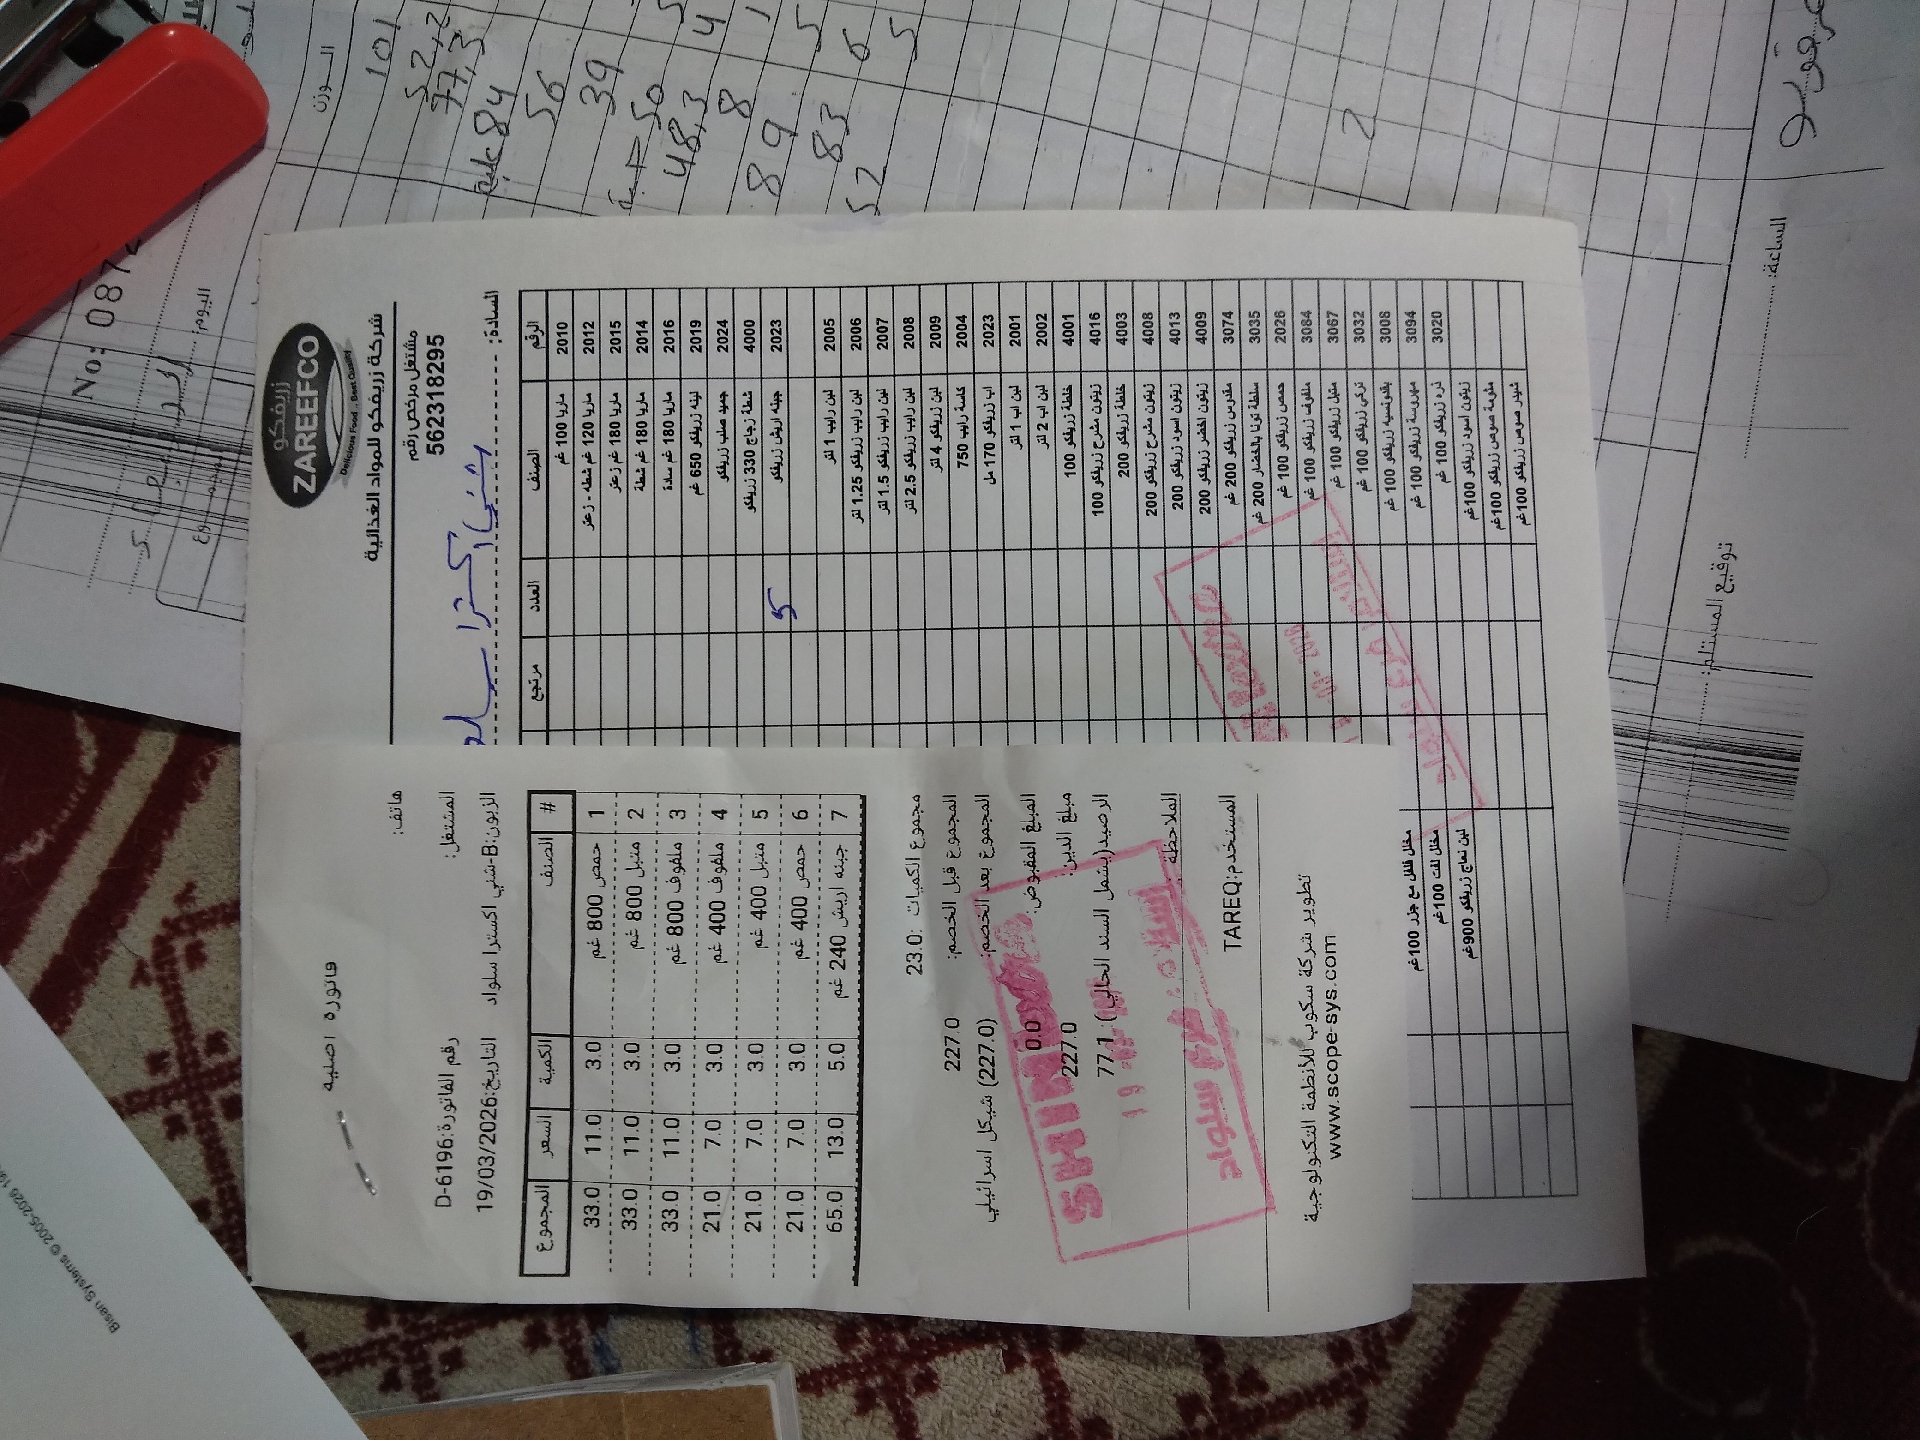 زريفكو
ZAREEFCO
Delicious Food . Best Quality
شركة زريفكو للمواد الغذائية
مشتغل مرخص رقم
562318295
السادة: شني اكسترا سلواد
الرقم الصنف العدد مرتجع
2010 ماريا 100 غم
2012 ماريا 120 غم شطه - زعتر
2015 ماريا 180 غم زعتر
2014 ماريا 180 غم شطة
2016 ماريا 180 غم سادة
2019 لبنه زريفكو 650 غم
2024 جميد صلب زريفكو
4000 شطة زجاج 330 زريفكو
2023 جبنه اريش زريفكو 5
2005 لبن رايب 1 لتر
2006 لبن رايب زريفكو 1.25 لتر
2007 لبن رايب زريفكو 1.5 لتر
2008 لبن رايب زريفكو 2.5 لتر
2009 لبن زريفكو 4 لتر
2004 كاسة رايب 750
2023 اب زريفكو 170 مل
2001 لبن اب 1 لتر
2002 لبن اب 2 لتر
4001 خلطة زريفكو 100
4016 زيتون مشرح زريفكو 100
4003 خلطة زريفكو 200
4008 زيتون مشرح زريفكو 200
4013 زيتون اسود زريفكو 200
4009 زيتون اخضر زريفكو 200
3074 مقدوس زريفكو 200 غم
3035 سلطة تونا بالخضار 200 غم
2026 حمص زريفكو 100 غم
3084 ملفوف زريفكو 100 غم
3067 متبل زريفكو 100 غم
3032 تركي زريفكو 100 غم
3008 بقدونسية زريفكو 100 غم
3094 مهروسة زريفكو 100 غم
3020 ذره زريفكو 100 غم
زيتون اسود زريفكو 100 غم
مثومة صوص زريفكو 100غم
شيدر صوص زريفكو 100غم
مخلل فلفل مع جزر 100غم
مخلل لفت 100غم
لبن نعاج زريفكو 900غم
فاتورة اصلية
هاتف:
رقم الفاتورة:D-6196
المشتغل:
التاريخ:19/03/2026
الزبون:B-شني اكسترا سلواد
# الصنف الكمية السعر المجموع
1 حمص 800 غم 3.0 11.0 33.0
2 متبل 800 غم 3.0 11.0 33.0
3 ملفوف 800 غم 3.0 11.0 33.0
4 ملفوف 400 غم 3.0 7.0 21.0
5 متبل 400 غم 3.0 7.0 21.0
6 حمص 400 غم 3.0 7.0 21.0
7 جبنه اريش 240 غم 5.0 13.0 65.0
مجموع الكميات :23.0
المجموع قبل الخصم: 227.0
المجموع بعد الخصم: (227.0) شيكل اسرائيلي
المبلغ المقبوض: 0.0
مبلغ الدين: 227.0
الرصيد(يشمل السند الحالي): 77.1
الملاحظة:
المستخدم:TAREQ
تطوير شركة سكوب للأنظمة التكنولوجية
www.scope-sys.com
فرع سلواد
No: 087
اليوم:
الوزن
101
52,2
77,3
84 علبة
56
39
50
48,3
8
89
83
52
2
الساعة:
توقيع المستلم:
Bisan Systems © 2005-2026